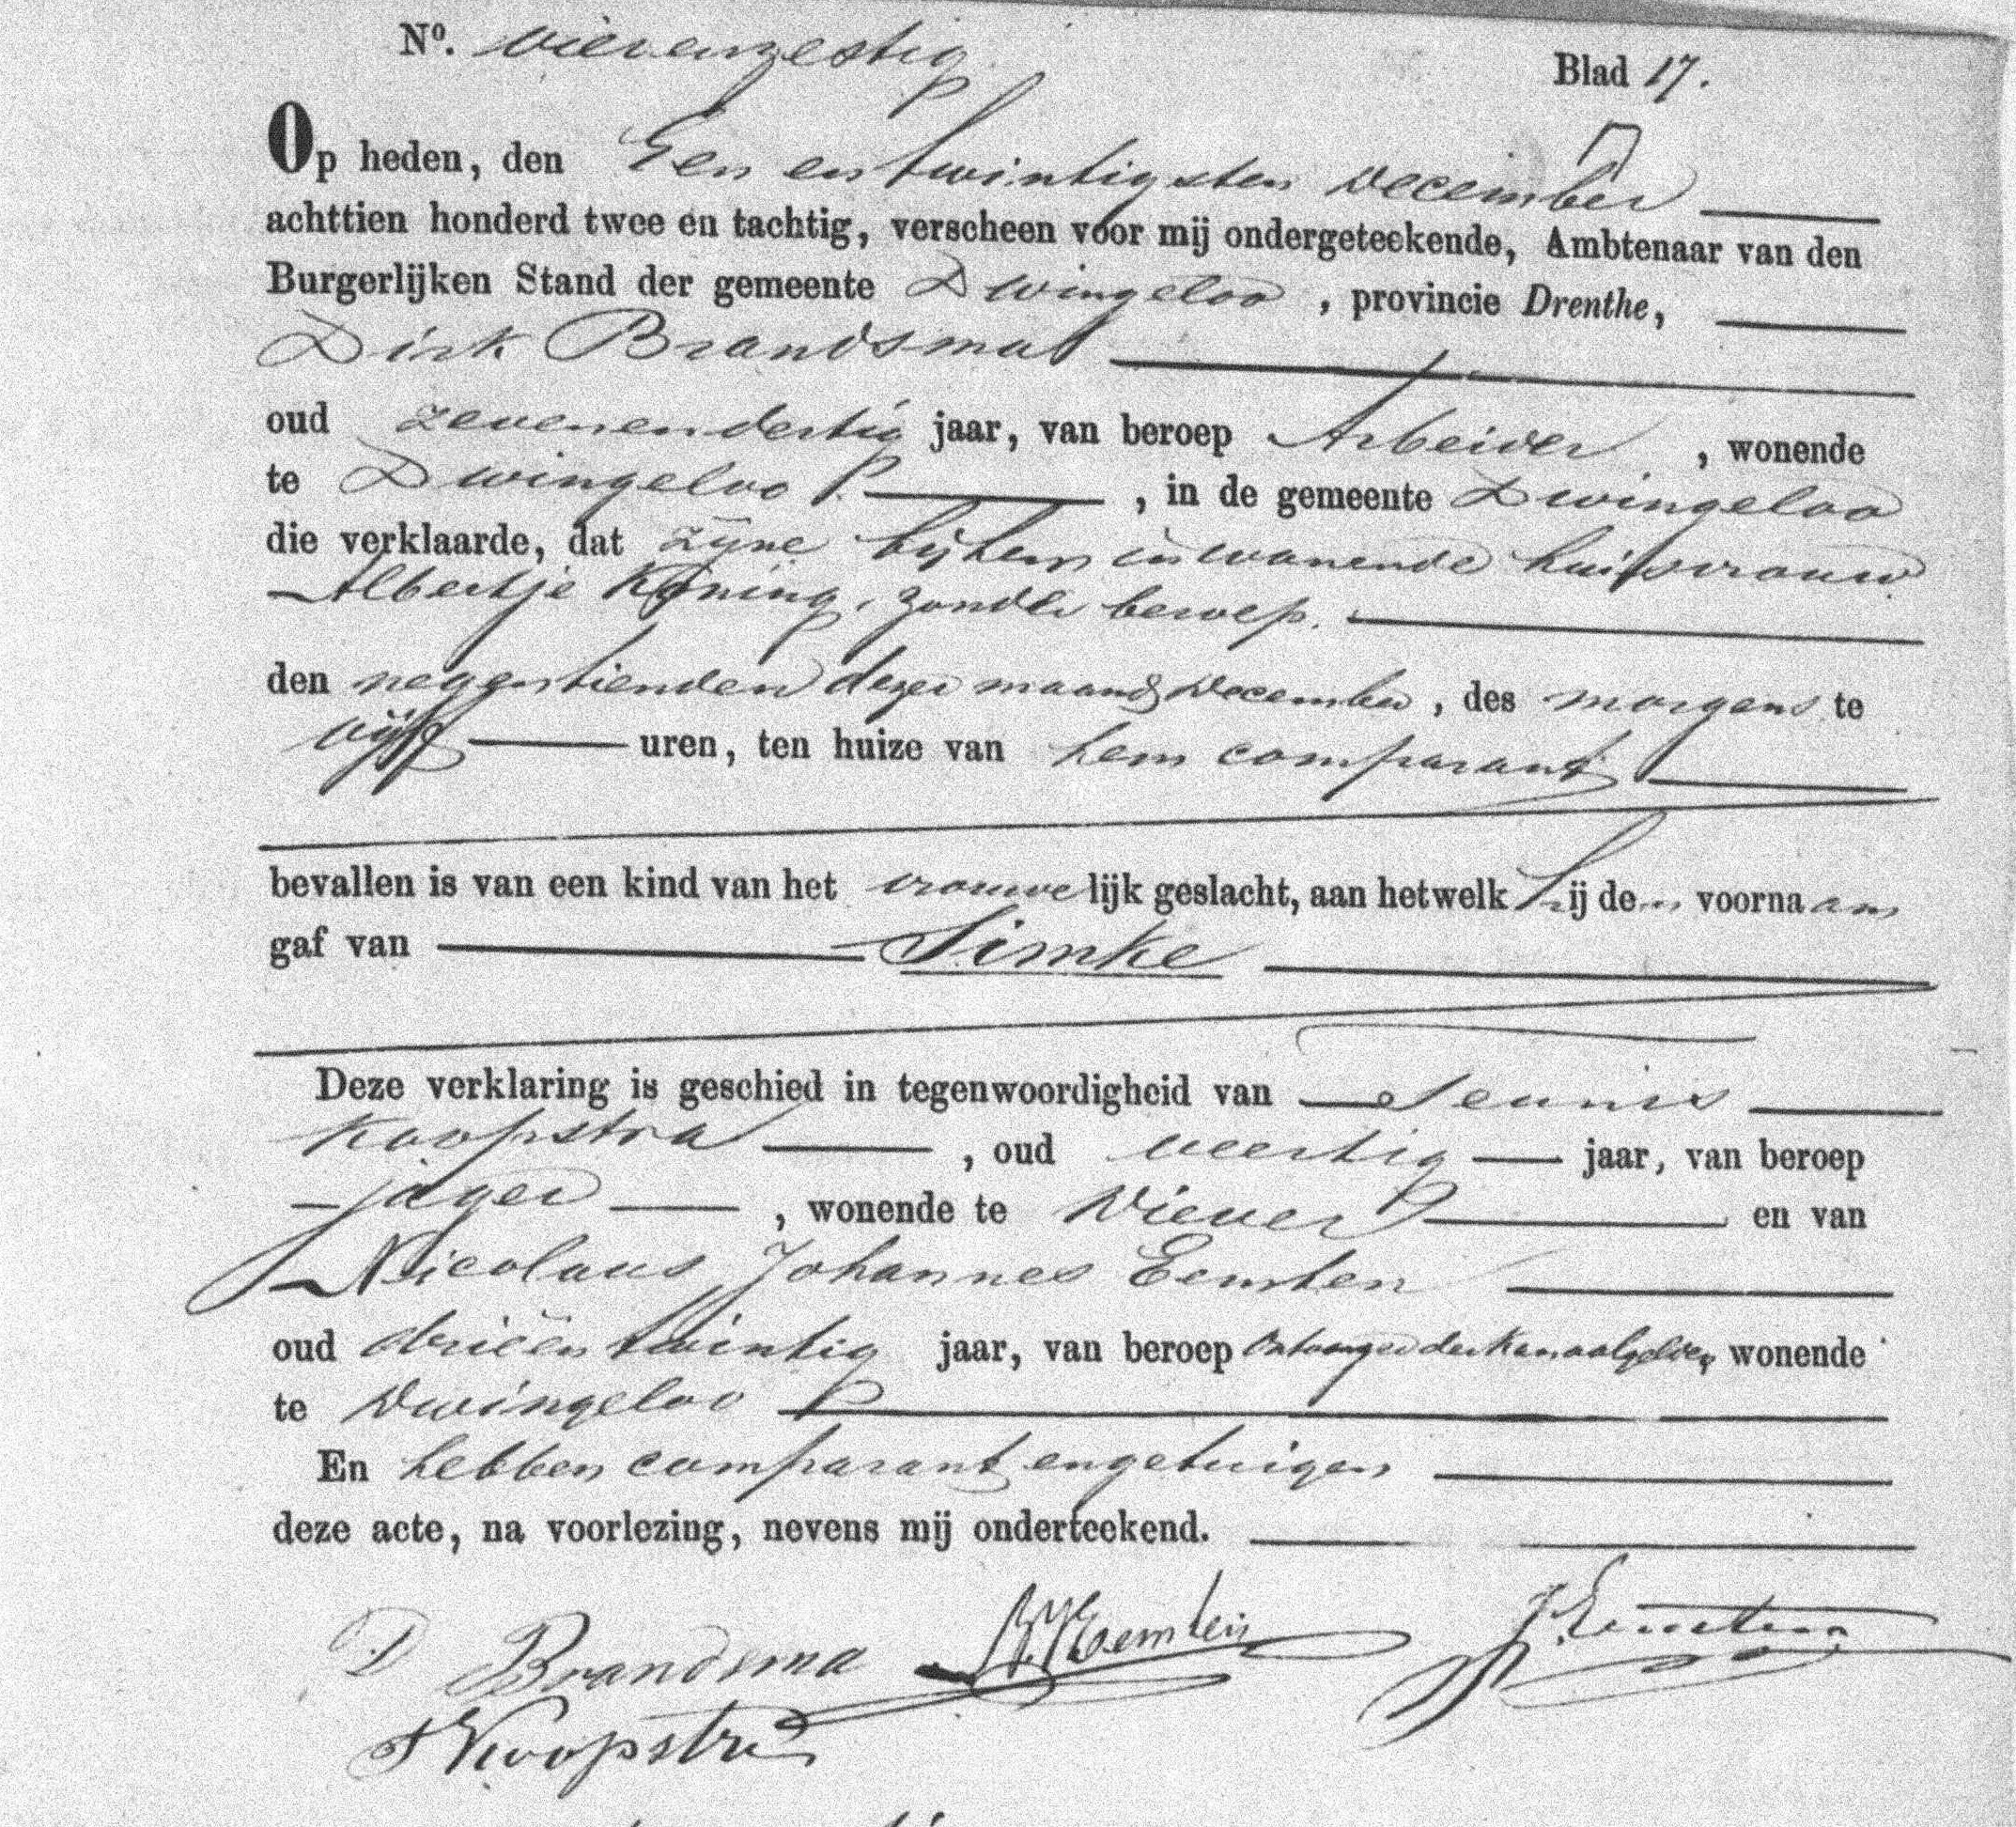 No. vierenzestig
Blad 17.
Op heden, den Een en twintigsten December
achttien honderd twee en tachtig, verscheen voor mij ondergeteekende, Ambtenaar van den
Burgerlijken Stand der gemeente Dwingeloo, provincie Drenthe,
Dirk Brandsma
oud zevenendertig jaar, van beroep Arbeider, wonende
te Dwingeloo, in de gemeente Dwingeloo
die verklaarde, dat zijne bij hem inwonende huisvrouw
Albertje Koning, zonder beroep.
den negentienden dezer maand December, des morgens te
vijf uren, ten huize van hem comparant
bevallen is van een kind van het vrouwelijk geslacht, aan hetwelk hij den voornaam
gaf van Simke
Deze verklaring is geschied in tegenwoordigheid van Teunis
Koopstra, oud veertig jaar, van beroep
jager, wonende te Diever en van
Nicolaus Johannes Eemten
oud drieëntwintig jaar, van beroep Ontvanger der Kanaalgelden, wonende
te Dwingeloo
En hebben comparant en getuigen
deze acte, na voorlezing, nevens mij onderteekend.
D Brandsma N.J. Eemten
T Koopstra